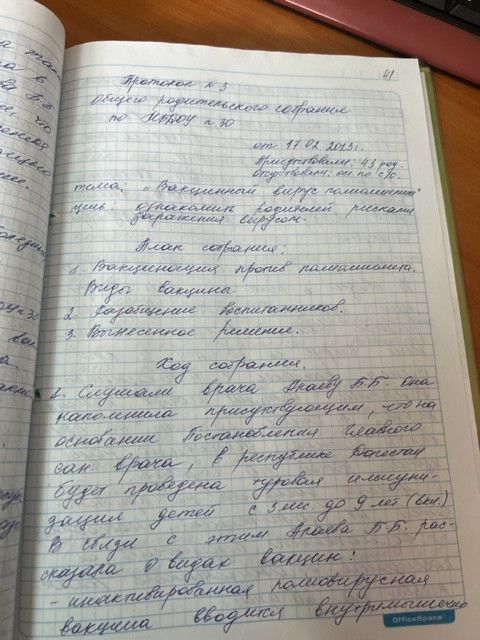 41
Протокол № 3
общего родительского собрания
по МБДОУ № 30
от 17.02.2023г.
Присутствовали: 43 род.
Отсутствовали: ост по с/о.
тема: „Вакцинный вирус полиомиелита"
цель: ознакомить родителей рисками
заражения вирусом.
План собрания:
1. Вакцинация против полиомиелита.
Виды вакцины.
2. Разобщение воспитанников.
3. Вынесенное решение.
Ход собрания.
1. Слушали врача Б.Б. Она
напомнила присутствующим, что на
основании Постановления главного
сан врача, в республике Дагестан
будет проведена туровая иммуни-
зация детей с 3 мес до 9 лет (вкл.)
В связи с этим Б.Б. рас-
сказала о видах вакцин:
- инактивированная полиовирусная
вакцина вводится внутримышечно
OfficeSpace